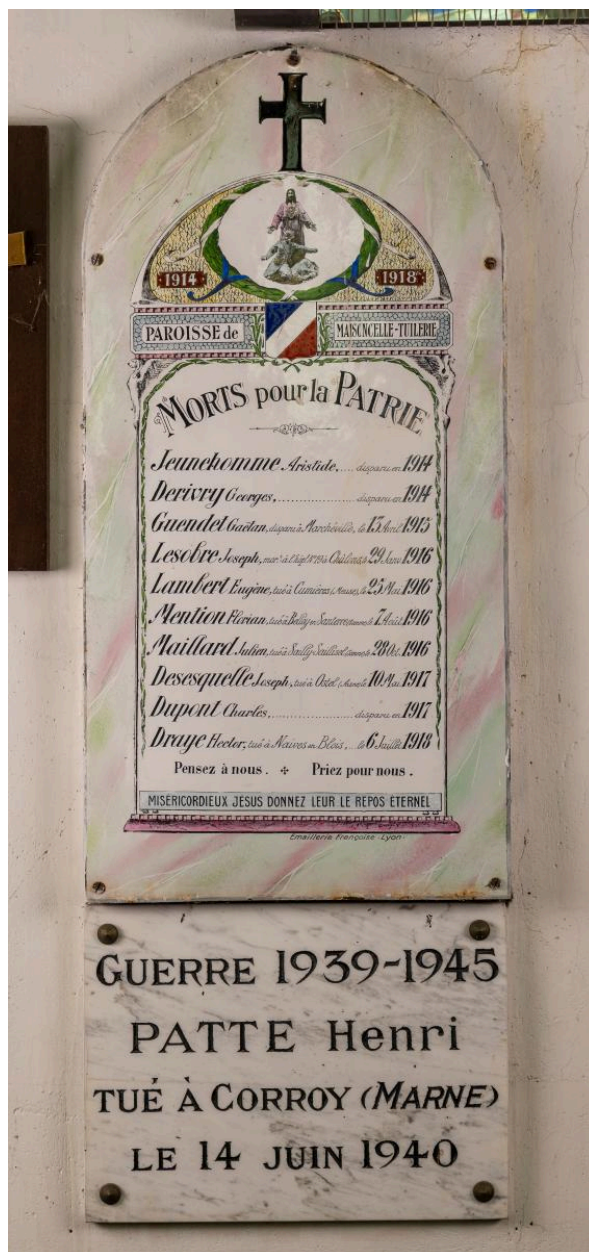 1914 1918
PAROISSE de MAISONCELLE-TUILERIE
MORTS pour la PATRIE
Jeunehomme Aristide,.... disparu en 1914
Derivry Georges,.................. disparu en 1914
Guendet Gaëtan, disparu à Marchéville, le 15 Avril 1915
Lesobre Joseph, à Châlons 29 Janv 1916
Lambert Eugène, tué à Cumières (Meuse), le 25 Mai 1916
Mention Florian, tué à Belloy en Santerre le 7 Août 1916
Maillard Julien, tué à Sailly Saillisel le 28 Oct. 1916
Desesquelle Joseph, tué à Ostel le 10 Mai 1917
Dupont Charles,.................. disparu en 1917
Draye Hector, tué à Naives en Blois,... le 6 Juillet 1918
Pensez à nous. ÷ Priez pour nous.
MISÉRICORDIEUX JÉSUS DONNEZ LEUR LE REPOS ÉTERNEL
Emaillerie Française - Lyon -
GUERRE 1939-1945
PATTE Henri
TUÉ À CORROY (MARNE)
LE 14 JUIN 1940